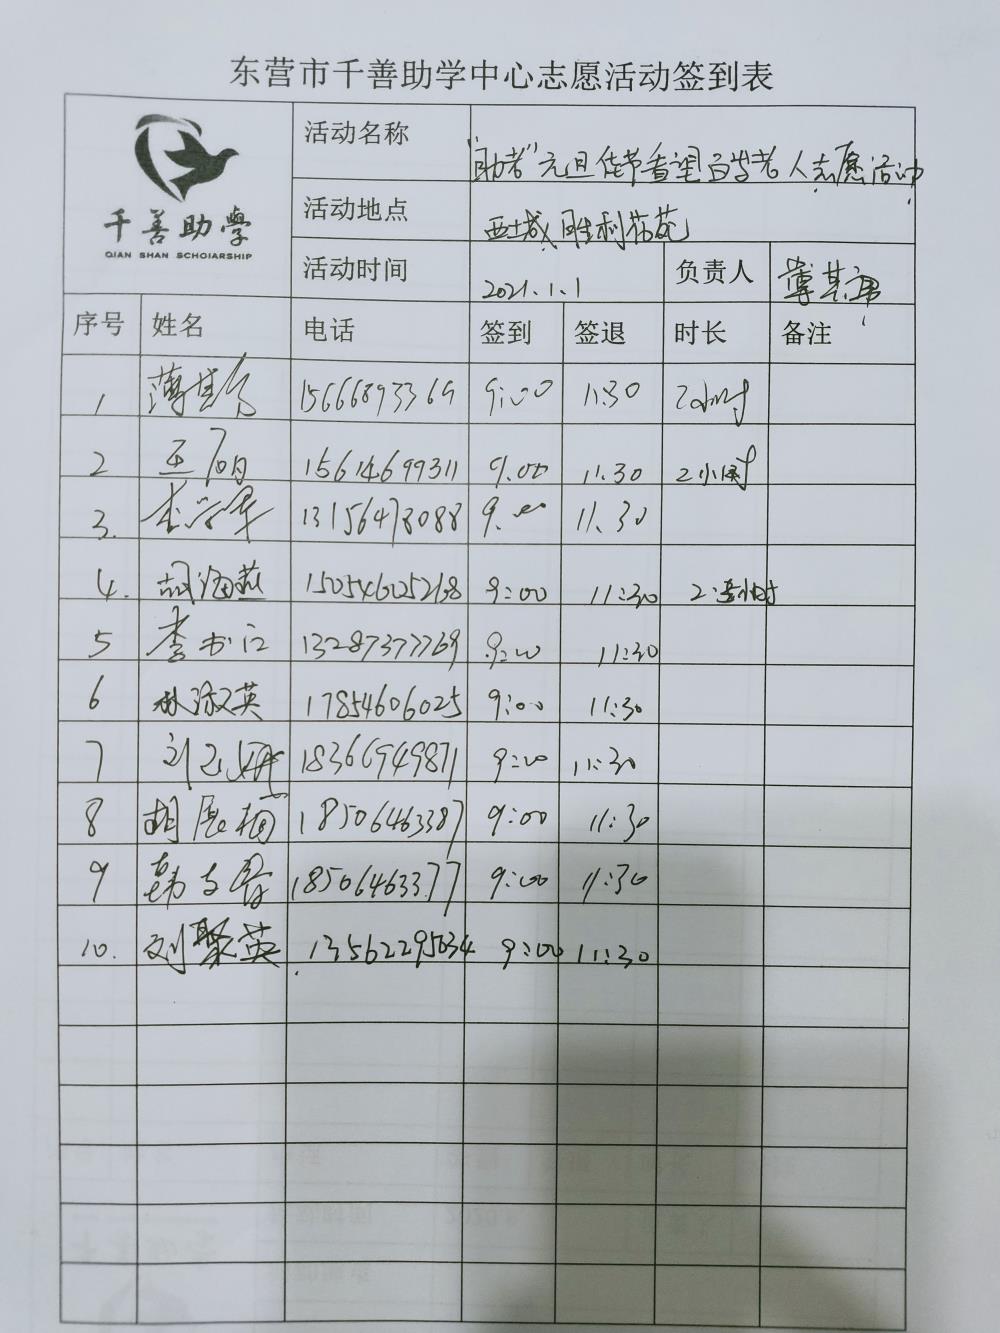 东营市千善助学中心志愿活动签到表
千善助學
QIAN SHAN SCHOIARSHIP
活动名称 "助老"元旦佳节看望 老人志愿活动
活动地点 西城胜利花苑
活动时间 2021.1.1 负责人
序号 姓名 电话 签到 签退 时长 备注
1 15666893369 9:00 11:30 2小时
2 王丽娟 15614699311 9.00 11.30 2小时
3. 13156473088 9.00 11.30
4. 胡海燕 15054605268 9:00 11:30 2小时
5 李书江 13287377769 9:00 11:30
6 林淑英 17854606025 9:00 11:30
7 刘玉娥 18366949871 9:00 11:30
8 胡展梅 18506463387 9:00 11:30
9 韩文香 18506463377 9:00 11:30
10. 刘聚英 13562295034 9:00 11:30